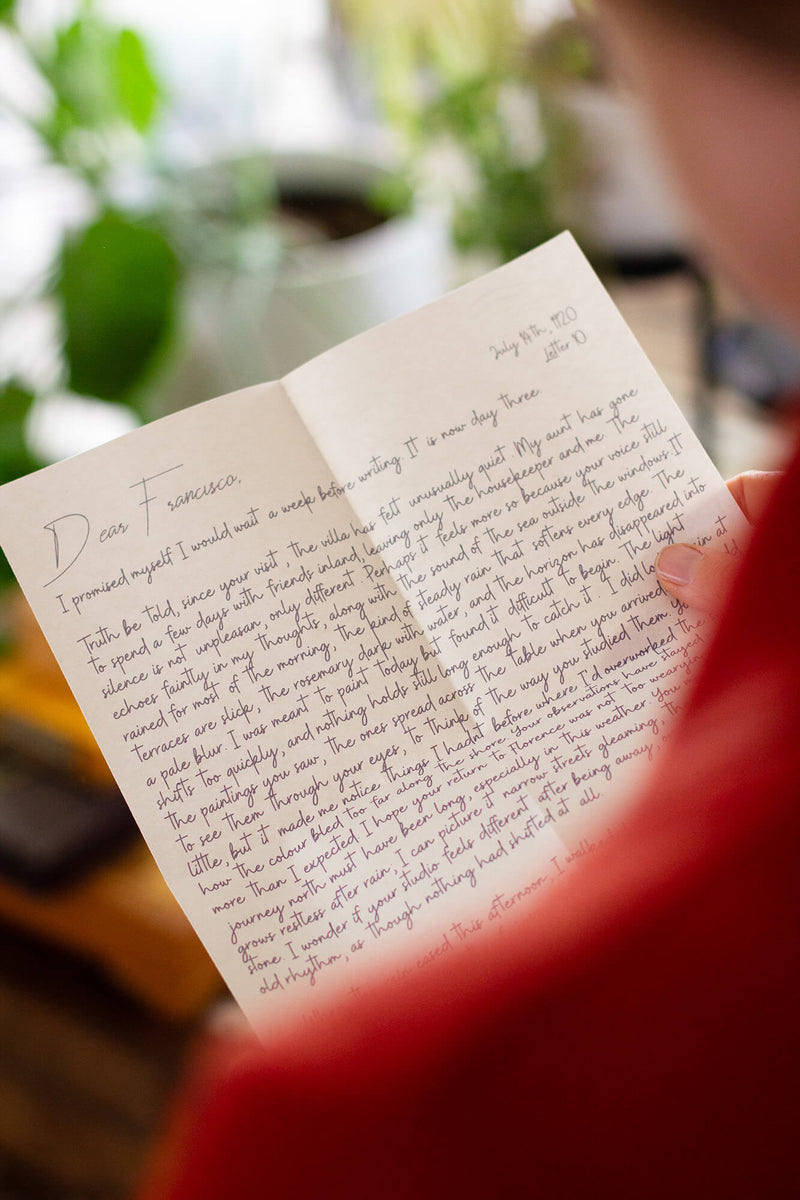 July 14th, 1920
Letter 10
Dear Francisco,
I promised myself I would wait a week before writing. It is now day three.
Truth be told, since your visit, the villa has felt unusually quiet. My aunt has gone
to spend a few days with friends inland, leaving only the housekeeper and me. The
silence is not unpleasan, only different. Perhaps it feels more so because your voice still
echoes faintly in my thoughts, along with the sound of the sea outside the windows. It
rained for most of the morning, the kind of steady rain that softens every edge. The
terraces are slick, the rosemary dark with water, and the horizon has disappeared into
a pale blur. I was meant to paint today but found it difficult to begin. The light
shifts too quickly, and nothing holds still long enough to catch it. I did in at
the paintings you saw, the ones spread across the table when you arrived
to see them through your eyes, to think of the way you studied them
little, but it made me notice things I hadn't before where I'd overworked the
how the colour bled too far along the shore. Your observations have stayed
more than I expected. I hope your return to Florence was not too wearyin
journey north must have been long, especially in this weather. You
grows restless after rain, I can picture it narrow streets gleaming, th
stone. I wonder if your studio feels different after being away,
old rhythm, as though nothing had shifted at all.
eased this afternoon, I walk